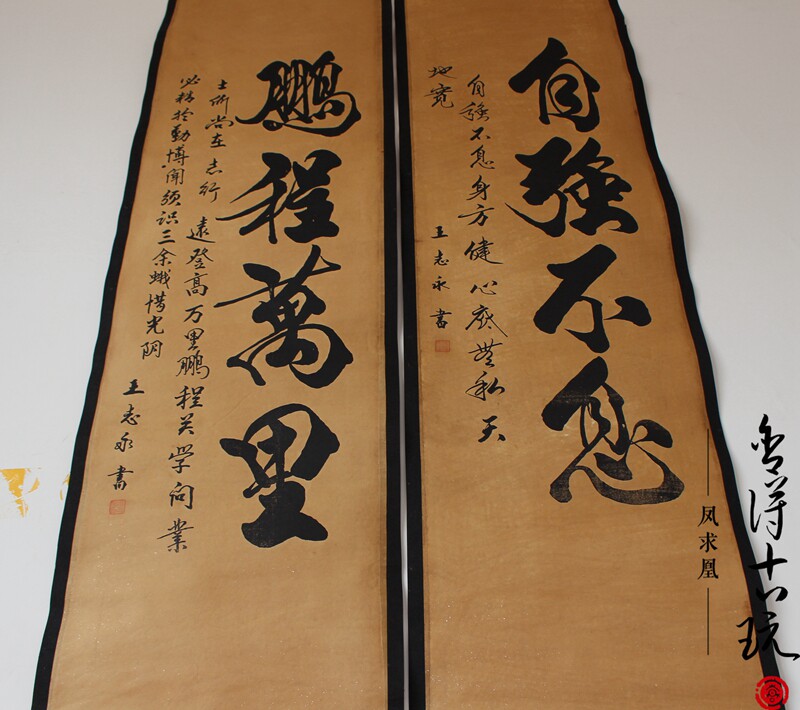 自強不息
自強不息身方健心底無私天
地寬
王志永書
鵬程萬里
士所尚在志行
遠登高万里鵬程关学问業
必精於勤博闻须识三余蛾惜光阴
王志永書
凤求凰